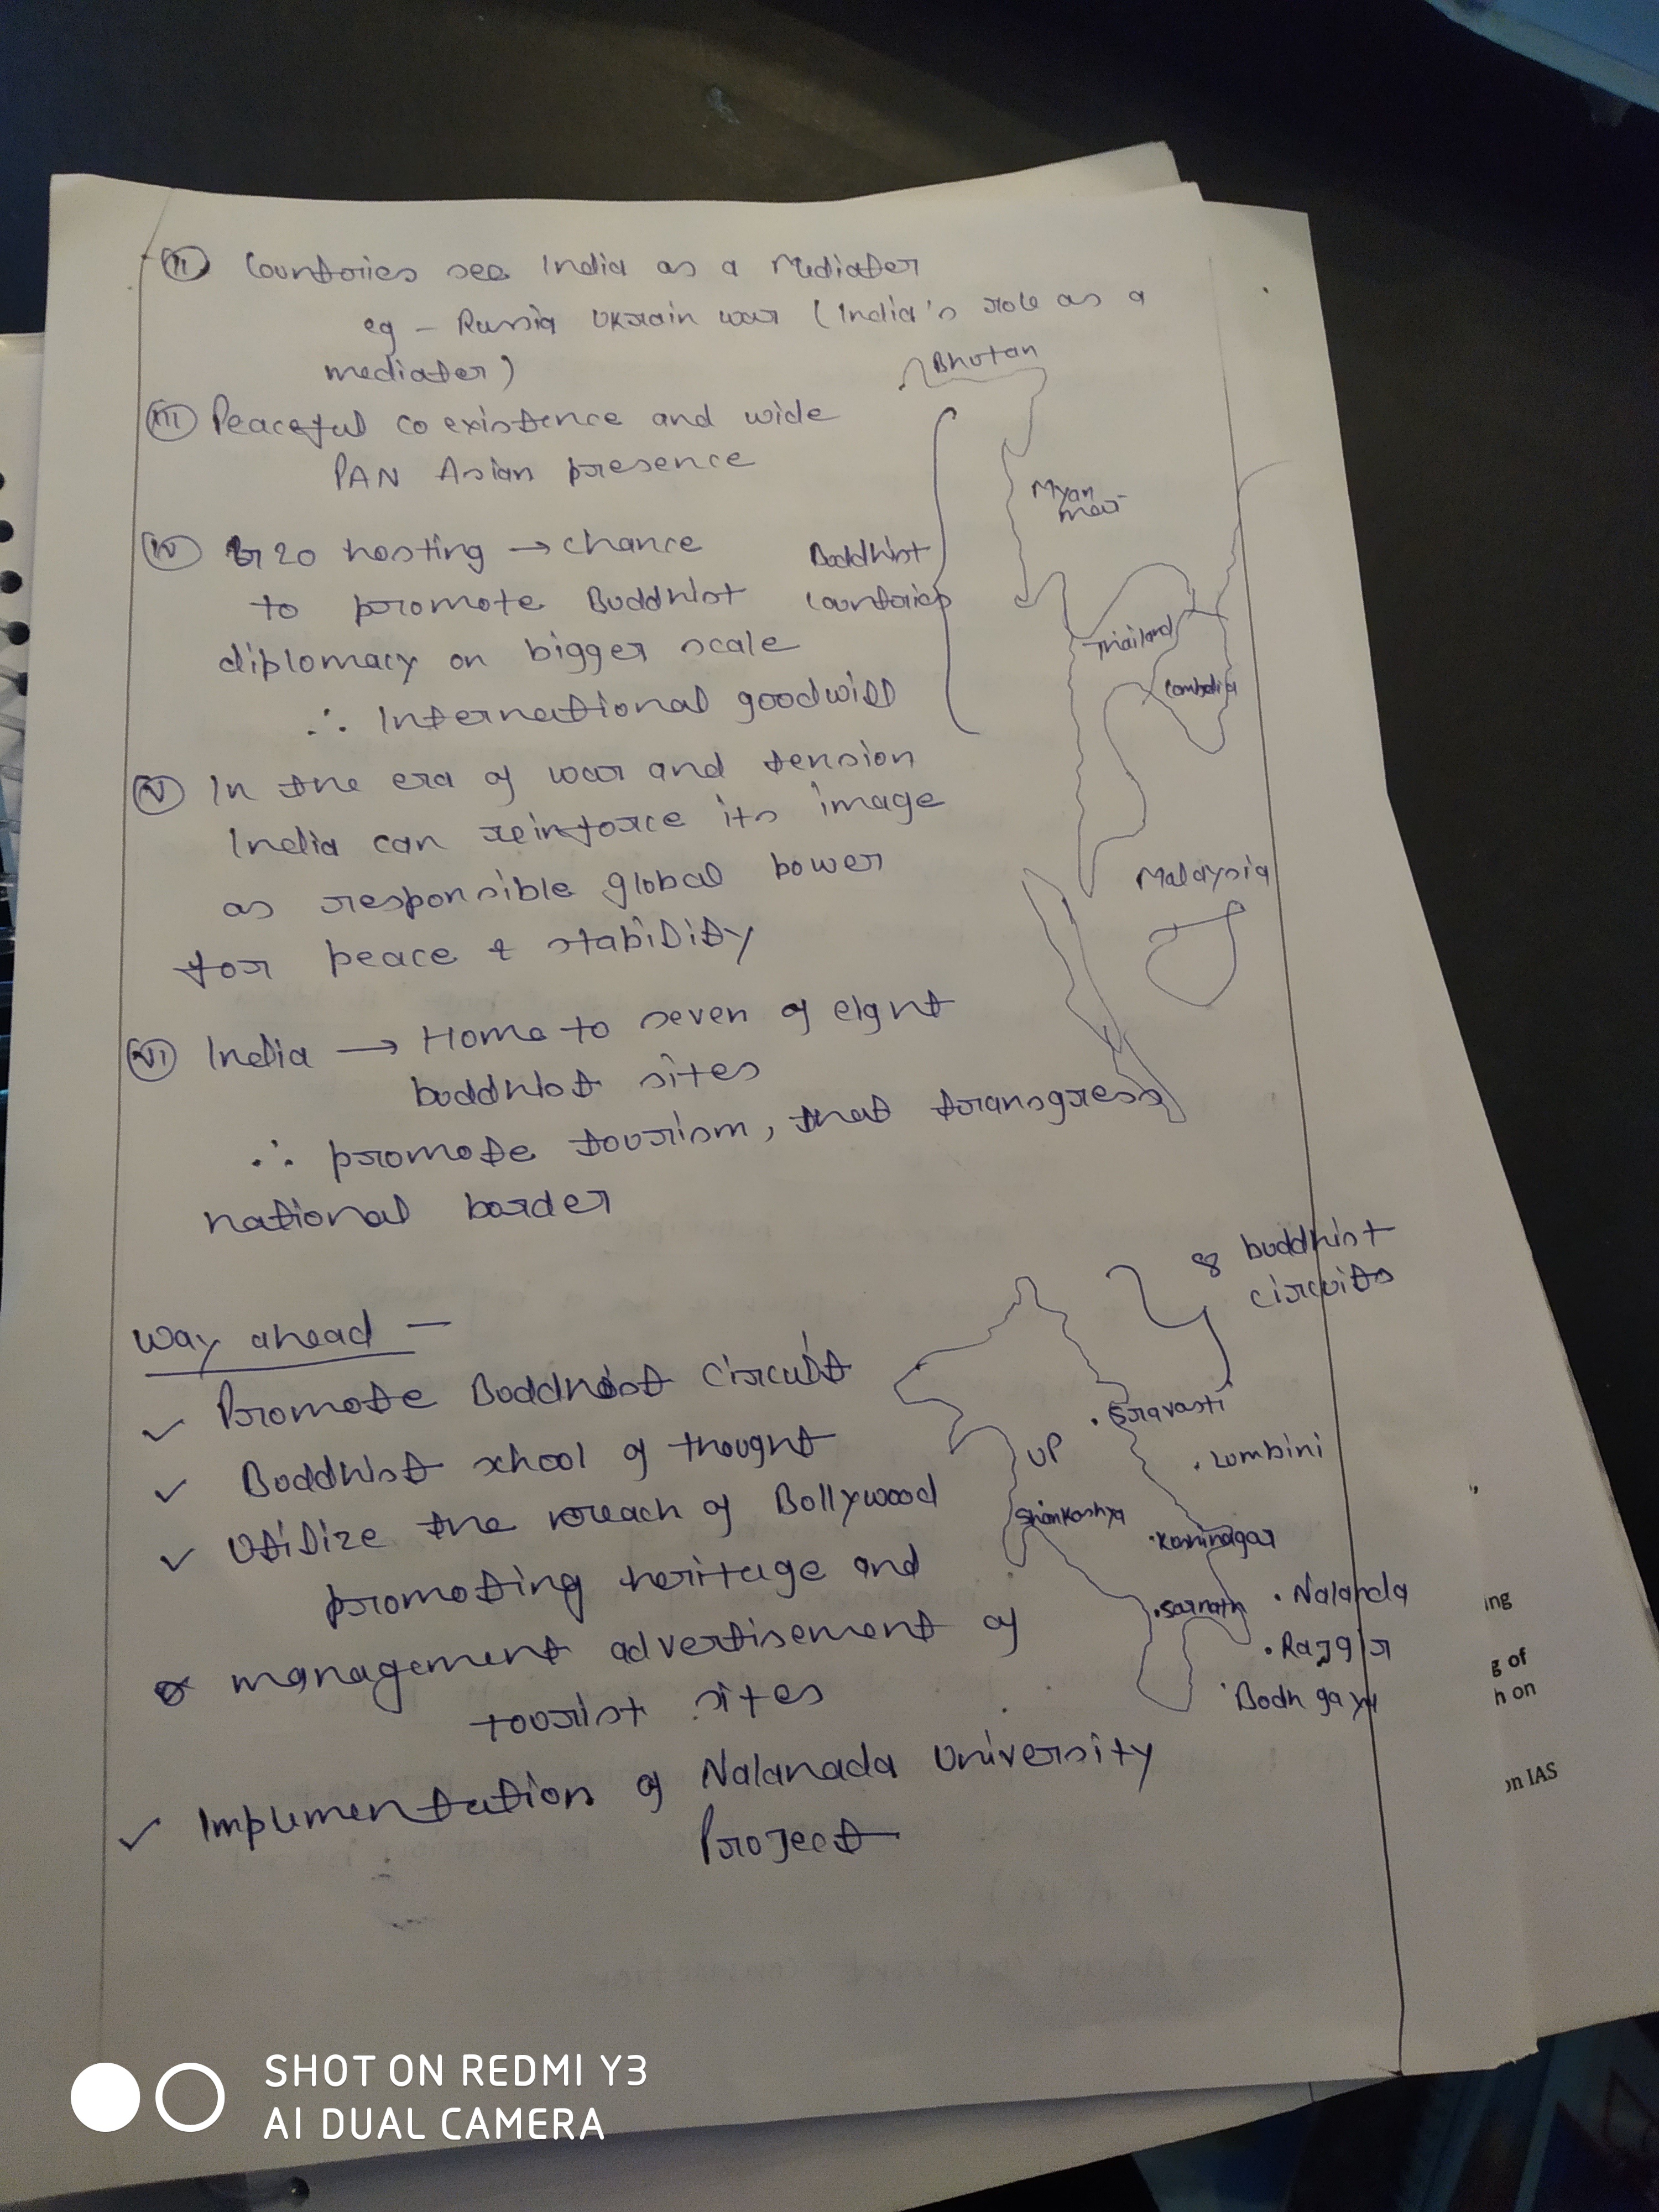 (II) Countries see India as a Mediater
eg - Russia Ukrain war (India's role as a
mediater)
Bhutan
(III) Peaceful co existence and wide
PAN Asian presence
Myan
mar
(IV) G20 hosting → chance
to promote Buddhist
diplomacy on bigger scale
∴ International goodwill
Buddhist
countries
Thailand
Combodia
Malaysia
(V) In the era of war and tension
India can reinforce its image
as responsible global power
for peace & stability
(VI) India → Home to seven of eight
buddhist sites
∴ promote tourism, that transgress
national border
8 buddhist
circuits
Way ahead -
✓ Promote Buddhist circuit
✓ Buddhist school of thought
✓ Utilize the reach of Bollywood
promoting heritage and
management advertisement of
tourist sites
✓ Implementation of Nalanada University
Project
Sravasti
UP
Lumbini
Shankashya
Kushinagar
Sarnath
Nalanda
Rajgir
Bodh gaya
ing
g of
h on
on IAS
SHOT ON REDMI Y3
AI DUAL CAMERA